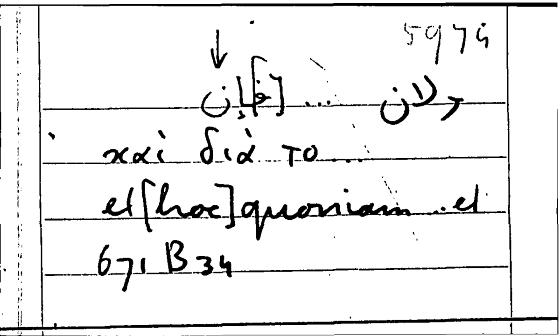 5974
ولان ... [ف]إن
καὶ διὰ το ...
et [hoc] quoniam .. et
671 B 34